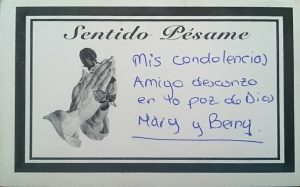 Sentido Pésame
Mis condolencias
Amigo descanzo
en la paz de Dios
Mary y Berny.